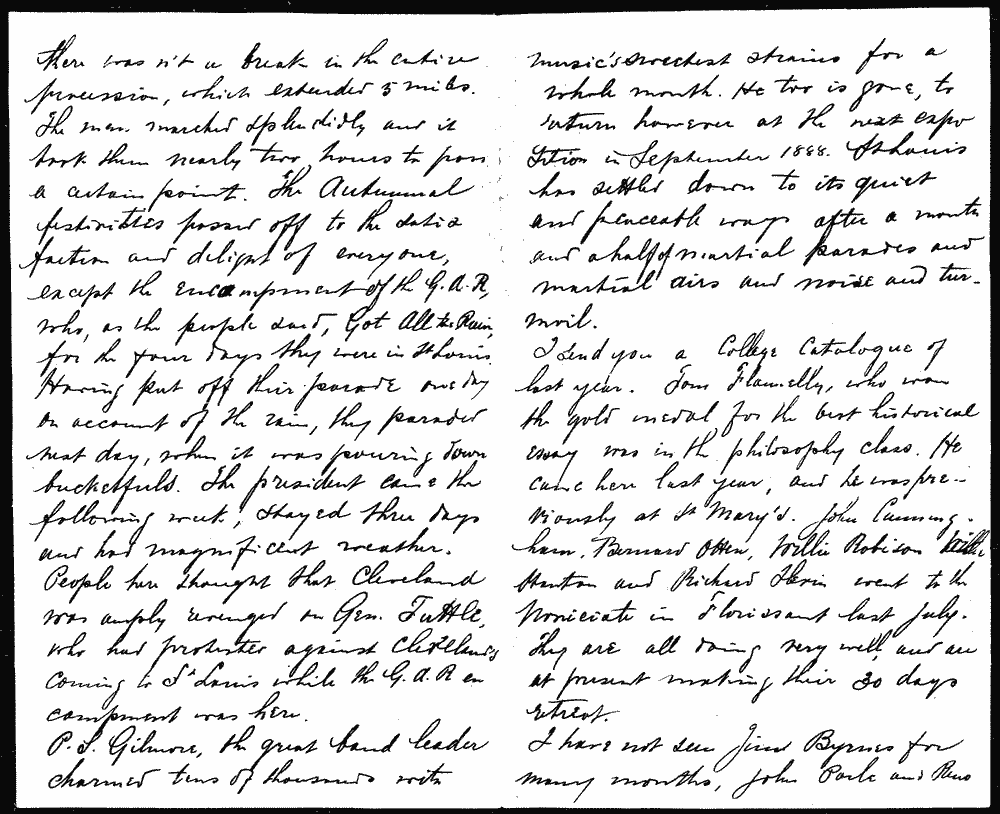 there was n't a break in the entire
procession, which extended 5 miles.
The men marched splendidly and it
took them nearly two hours to pass
a certain point. The Autumnal
festivities passed off to the satis
faction and delight of everyone,
except the encampment of the G.A.R,
who, as the people said, Got All the Rain,
for the four days they were in St Louis.
Having put off their parade one day
on account of the rain, they paraded
next day, when it was pouring down
bucketfuls. The president came the
following week, stayed three days
and had magnificent weather.
People here thought that Cleveland
was amply avenged on Gen. Tuttle,
who had protested against Cleveland's
coming to St Louis while the G.A.R en
campment was here.
P. S. Gilmore, the great band leader
charmed tens of thousands with
music's sweetest strains for a
whole month. He too is gone, to
return however at the next expo
sition in September 1888. St Louis
has settled down to its quiet
and peaceable ways after a month
and a half of martial parades and
martial airs and noise and tur-
moil.
I send you a College Catalogue of
last year. Tom Flannelly, who won
the gold medal for the best historical
essay was in the philosophy class. He
came here last year, and he was pre-
viously at St Mary's. John Cunning-
ham, Bernard Otten, Willie Robison Willie
Stanton and Richard Slevin went to the
Noviciate in Florissant last July.
They are all doing very well, and are
at present making their 30 days
retreat.
I have not seen Jim Byrnes for
many months, John Poole and